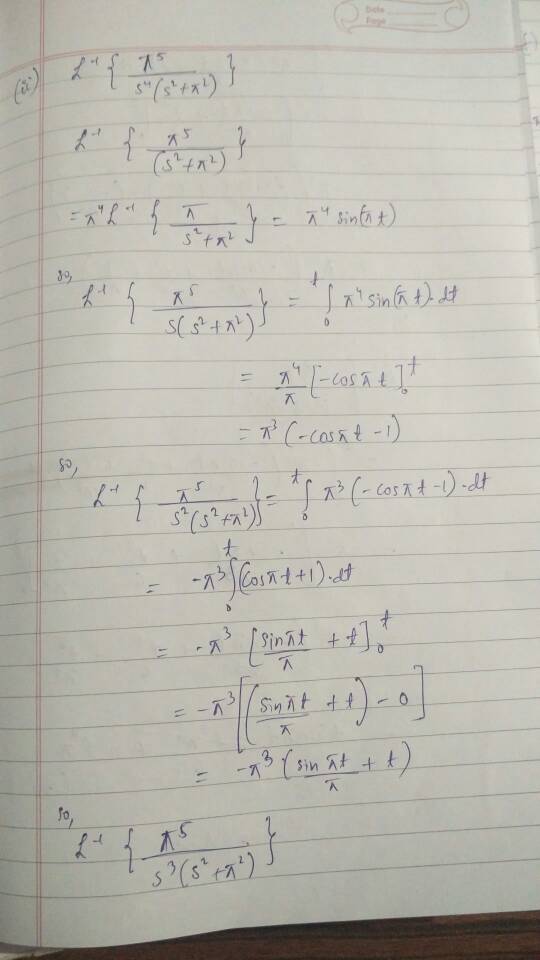 Date
Page
(ii) L⁻¹ { π⁵ / s⁴(s²+π²) }
L⁻¹ { π⁵ / (s²+π²) }
= π⁴ L⁻¹ { π / s²+π² } = π⁴ sin(πt)
so,
L⁻¹ { π⁵ / s(s²+π²) } = ∫₀ᵗ π⁴ sin(πt)·dt
= π⁴/π [-cosπt]₀ᵗ
= π³ (-cosπt -1)
so,
L⁻¹ { π⁵ / s²(s²+π²) } = ∫₀ᵗ π³ (-cosπt -1)·dt
= -π³ ∫₀ᵗ (cosπt+1)·dt
= -π³ [sinπt/π + t]₀ᵗ
= -π³ [(sinπt/π + t) - 0]
= -π³ (sinπt/π + t)
so,
L⁻¹ { π⁵ / s³(s²+π²) }